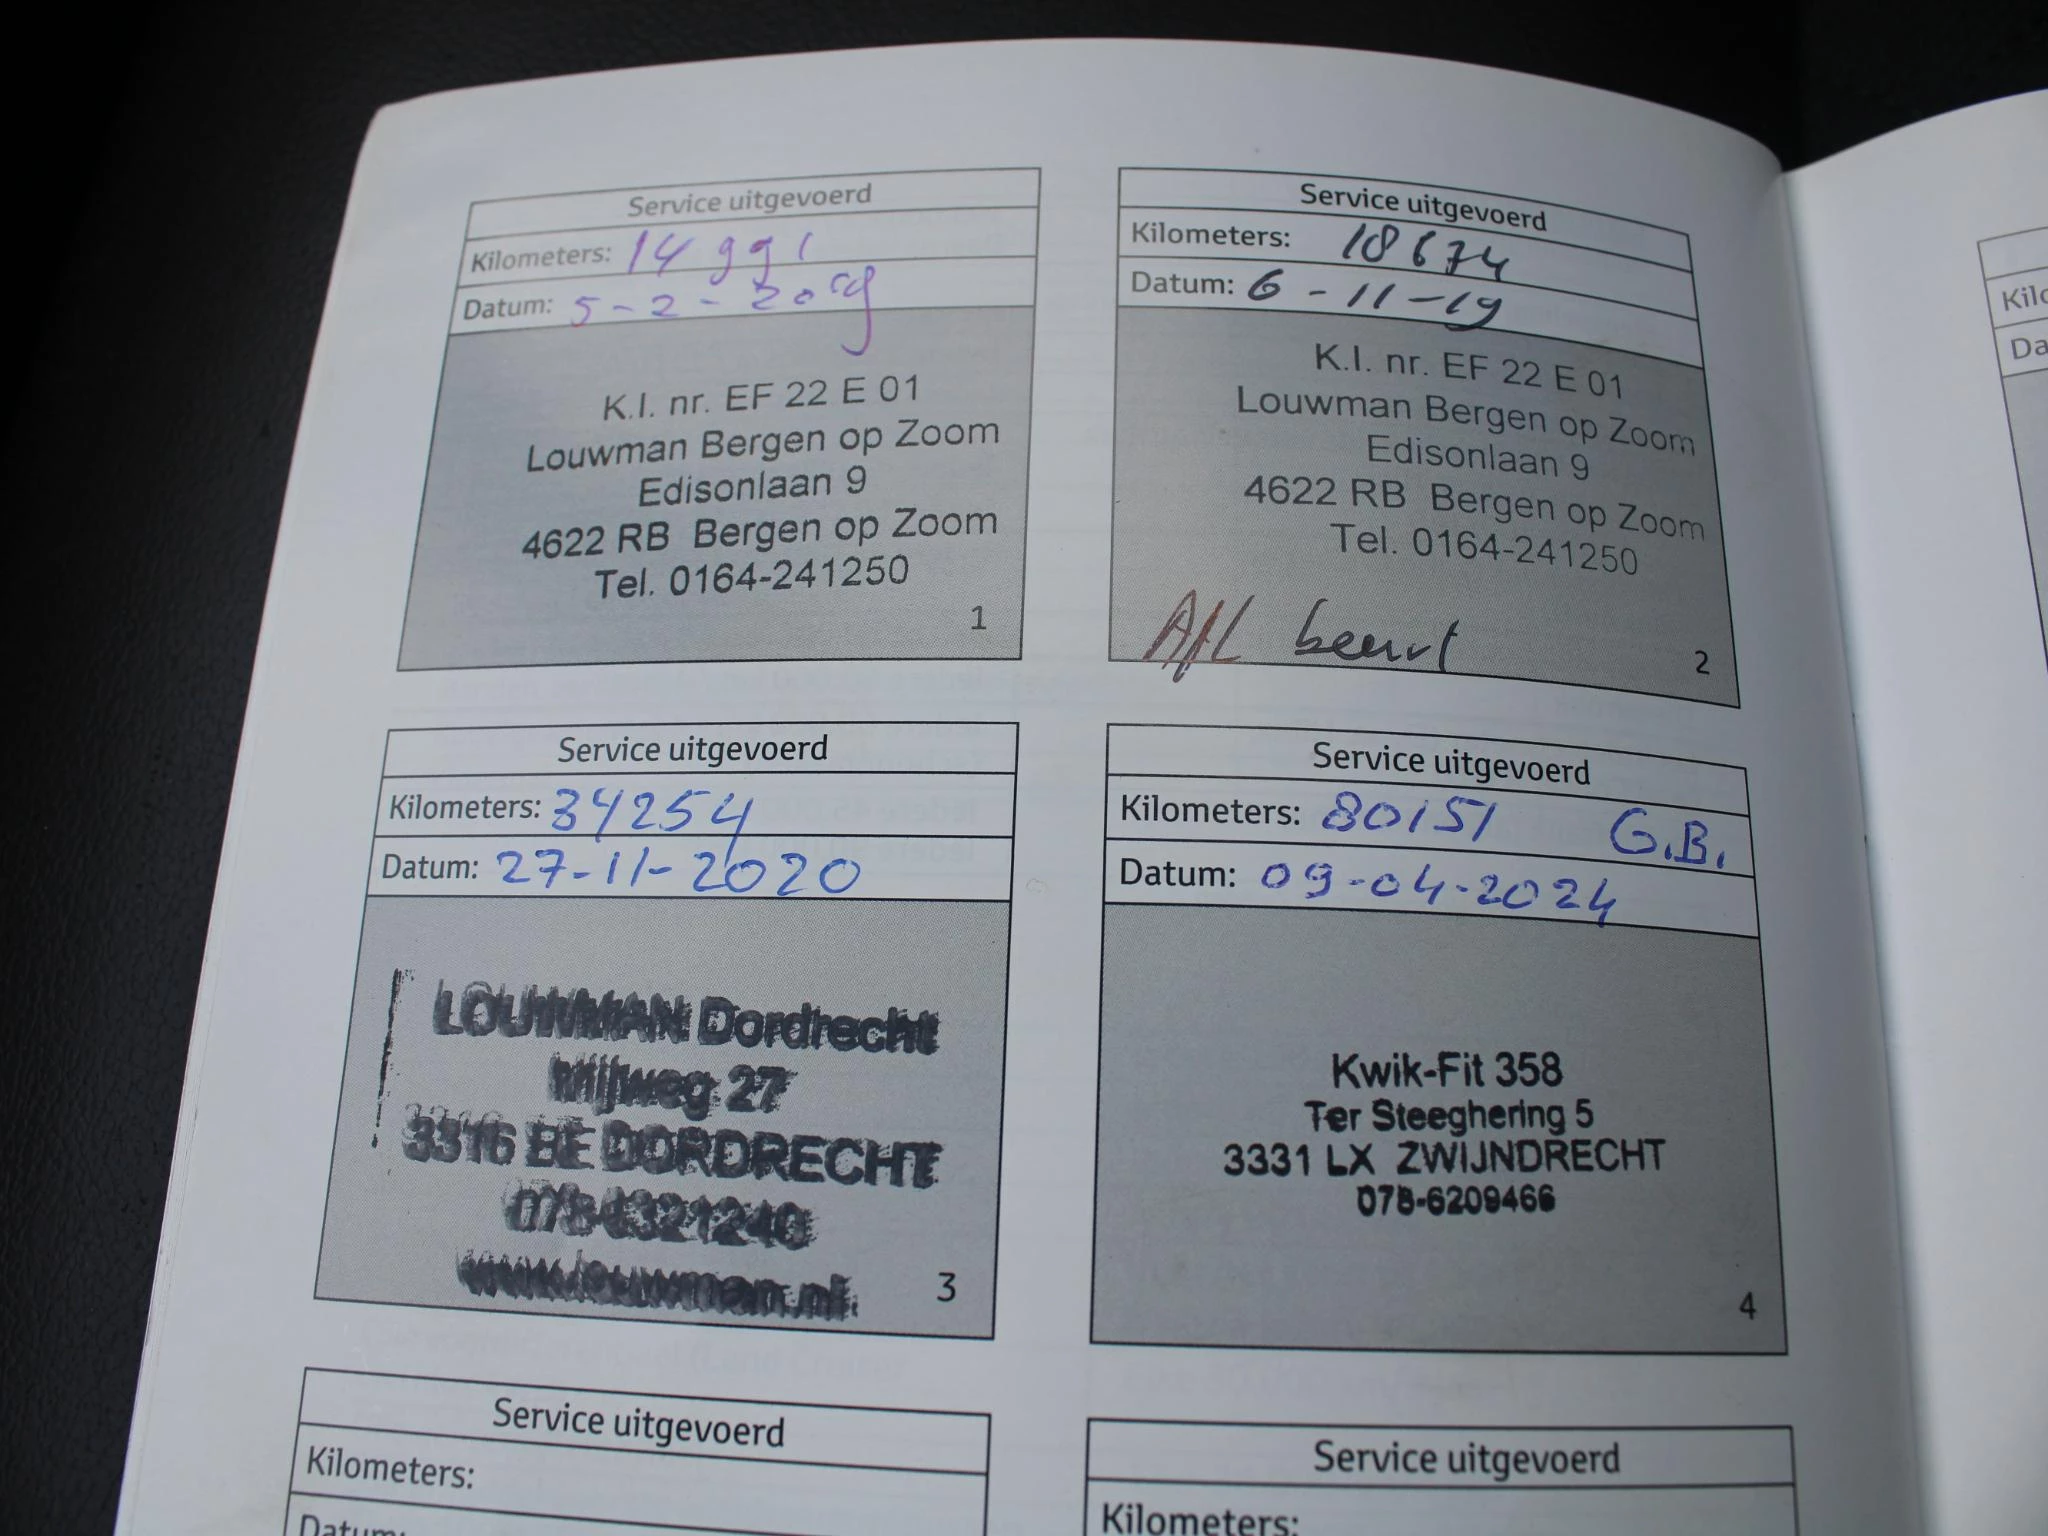 Service uitgevoerd
Kilometers: 14991
Datum: 5-2-2019
K.I. nr. EF 22 E 01
Louwman Bergen op Zoom
Edisonlaan 9
4622 RB Bergen op Zoom
Tel. 0164-241250
1
Service uitgevoerd
Kilometers: 18674
Datum: 6-11-19
K.I. nr. EF 22 E 01
Louwman Bergen op Zoom
Edisonlaan 9
4622 RB Bergen op Zoom
Tel. 0164-241250
beurt
2
Service uitgevoerd
Kilometers: 34254
Datum: 27-11-2020
LOUWMAN Dordrecht
Mijlweg 27
3316 BE DORDRECHT
078-6321240
www.louwman.nl
3
Service uitgevoerd
Kilometers: 80151 G.B.
Datum: 09-04-2024
Kwik-Fit 358
Ter Steeghering 5
3331 LX ZWIJNDRECHT
078-6209466
4
Service uitgevoerd
Kilometers:
Datum:
Service uitgevoerd
Kilometers:
Kilo
Da